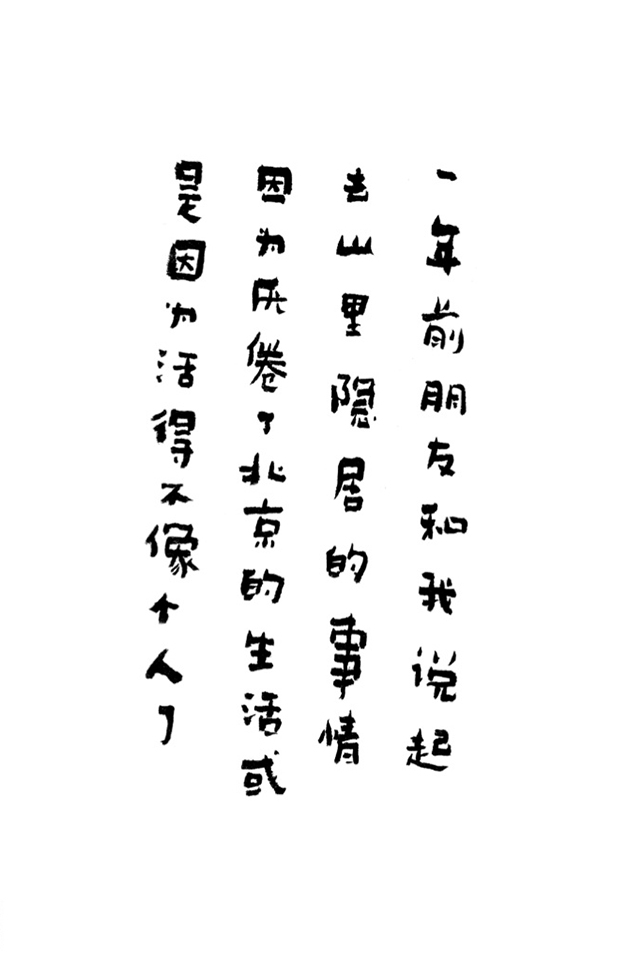 一年前朋友和我说起
去山里隐居的事情
因为厌倦了北京的生活或
是因为活得不像个人了